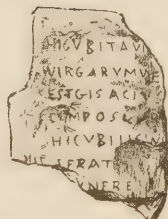 HICVBITAV
WIRGARVMV
ESTGISACI
COMPOSI
HICVBIIIK
HIC SERAT
VNEREI